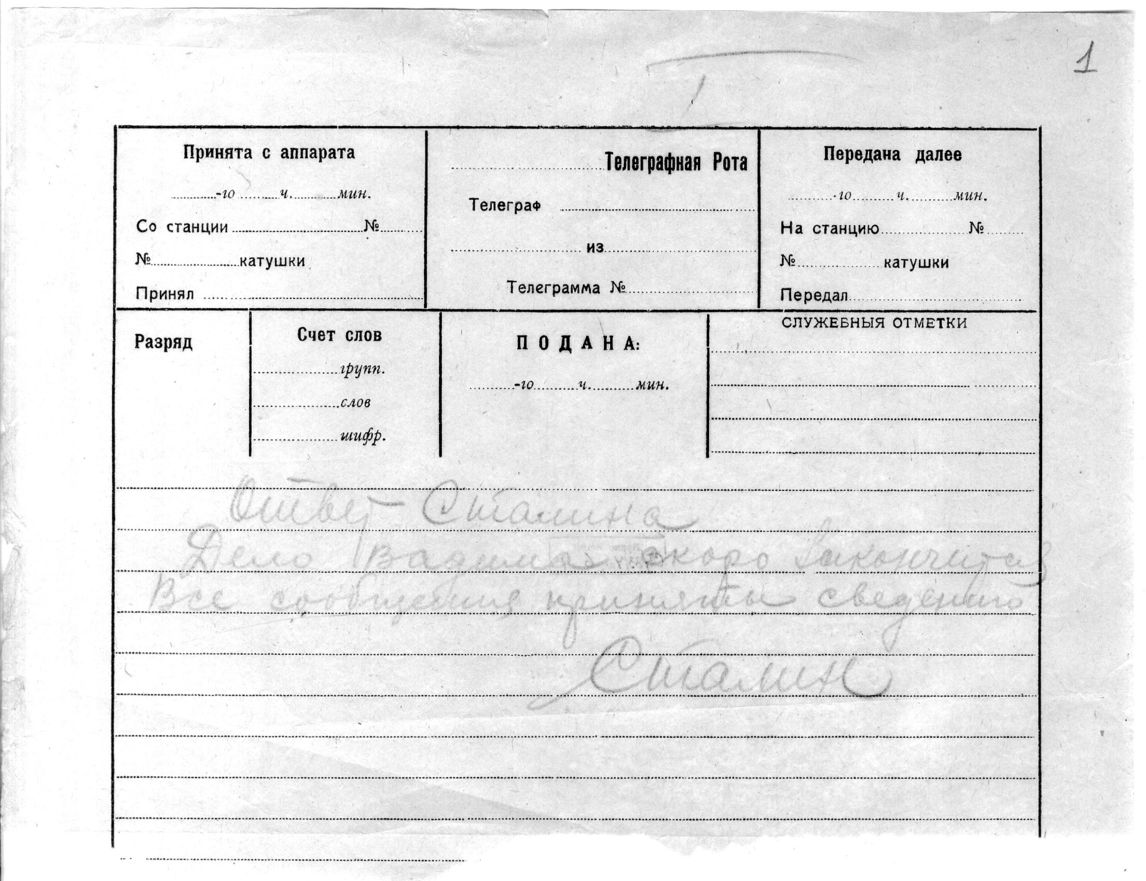 1
Принята с аппарата
-го ч. мин.
Со станции №
№ катушки
Принял
Телеграфная Рота
Телеграф
из
Телеграмма №
Передана далее
-го ч. мин.
На станцию №
№ катушки
Передал
Разряд
Счет слов
групп.
слов
шифр.
ПОДАНА:
-го ч. мин.
СЛУЖЕБНЫЯ ОТМЕТКИ
Ответ Сталина
Дело Вадима скоро закончится
Все сообщения приняты сведению
Сталин